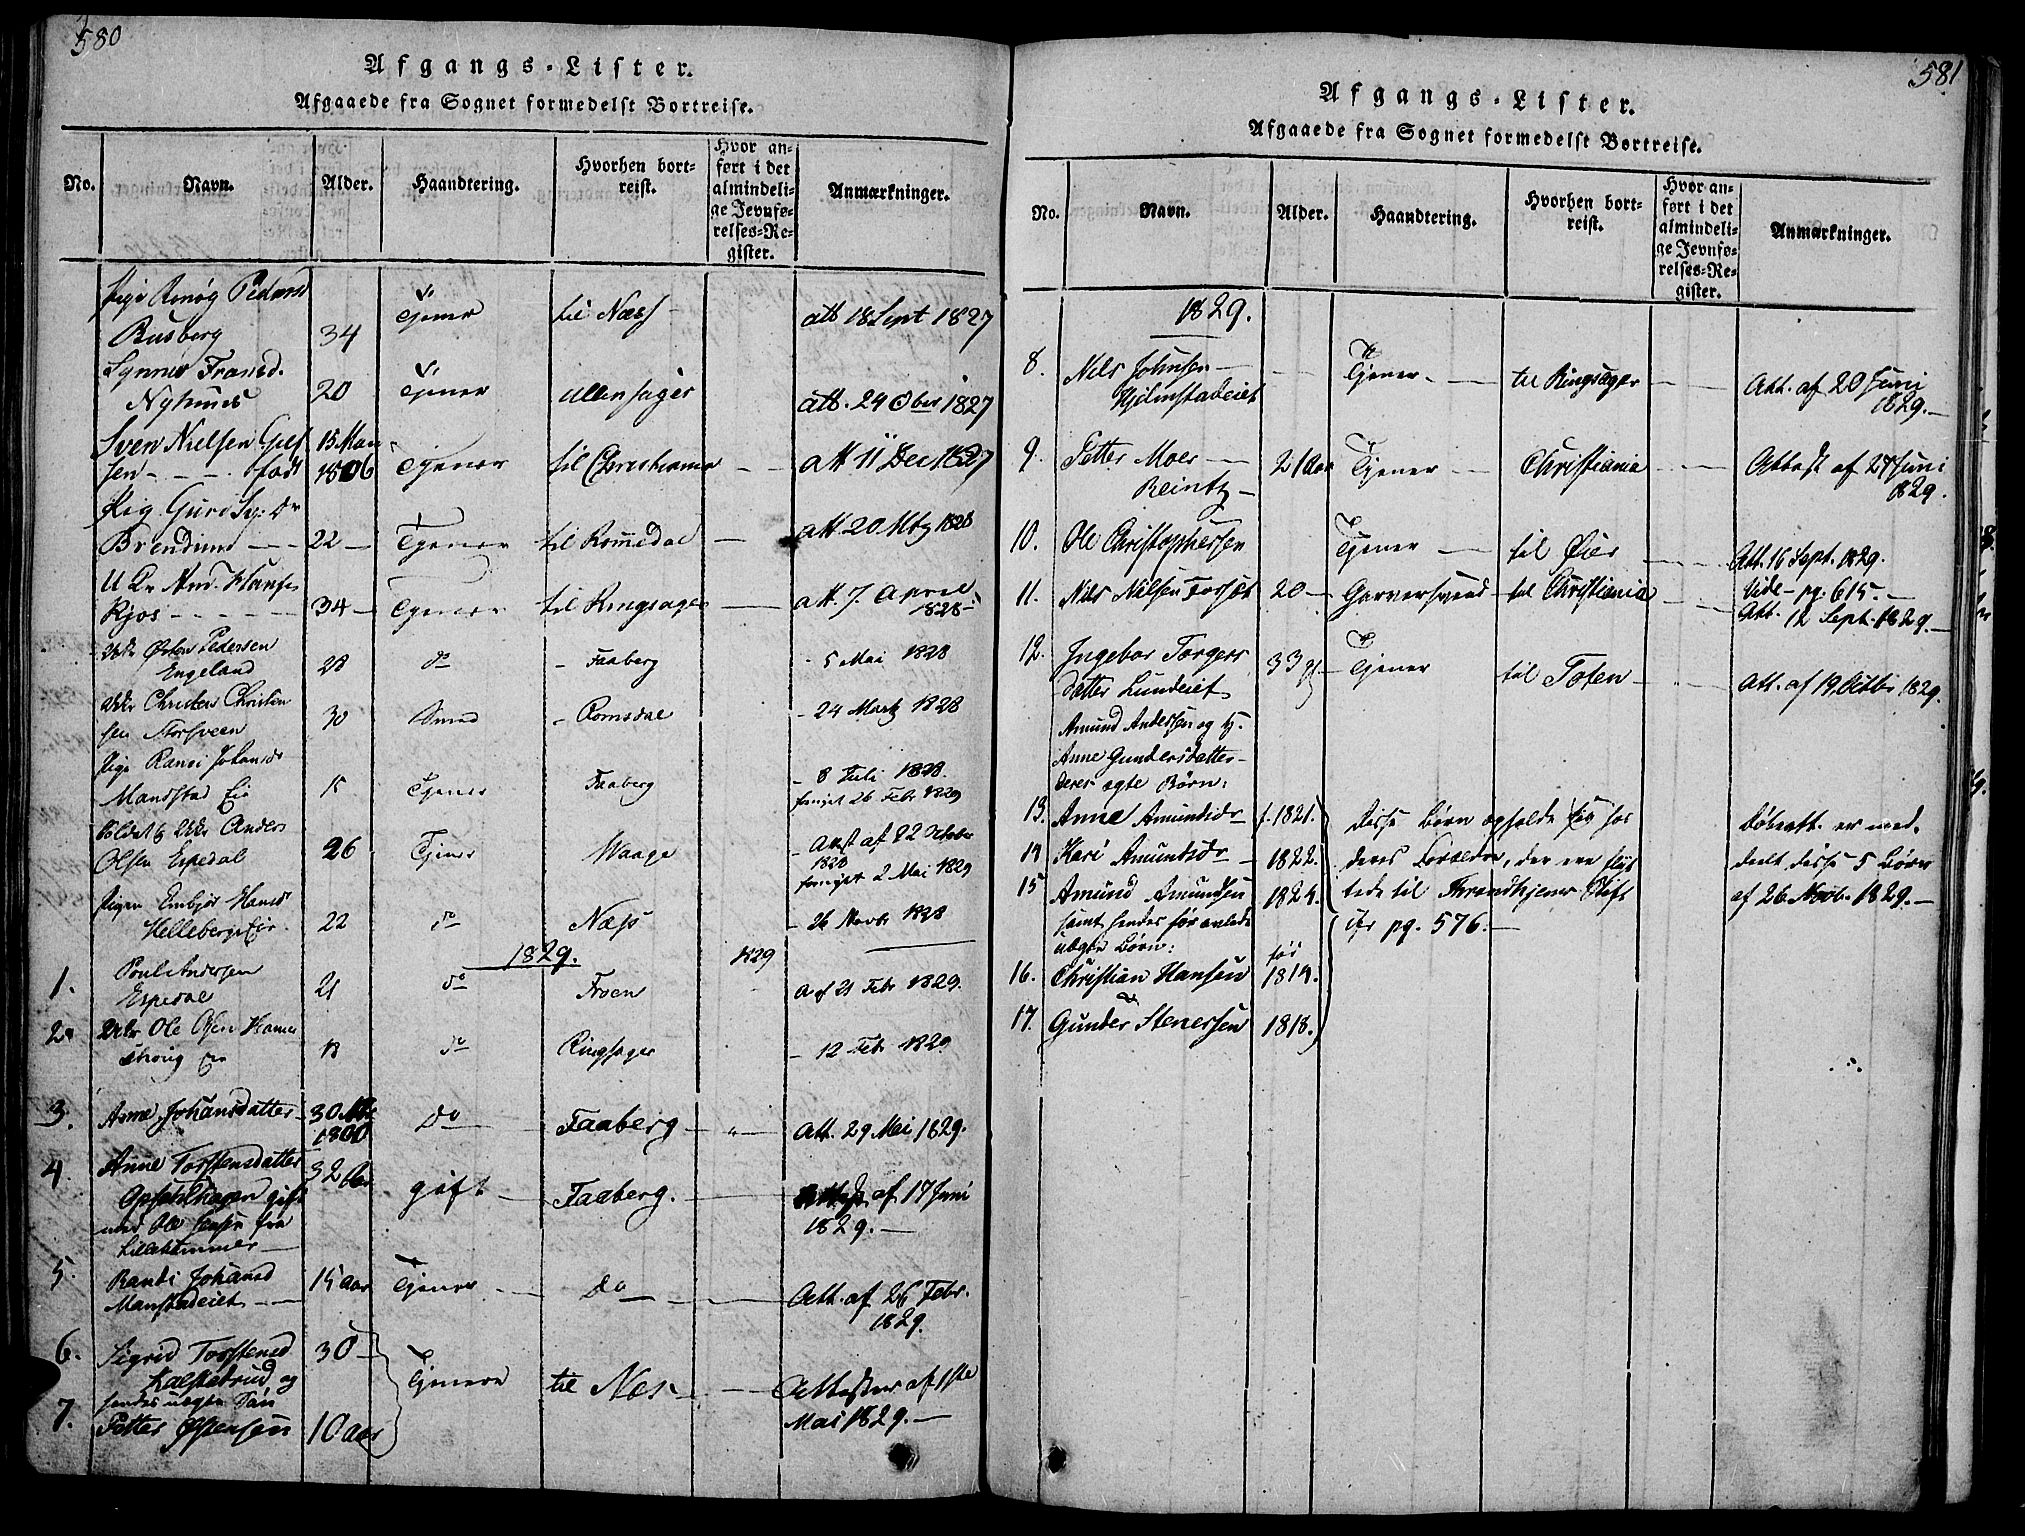 580
Afgangs-Lister.
Afgaaede fra Sognet formedelst Bortreise.
No. Navn. Alder. Haandtering. Hvorhen bortreist. Hvor anført i det almindelige Jevnførelses-Register. Anmærkninger.
Pige Rønøg Pedersd
Busberg 34 Tjener til Næss att 18 Sept 1827
Synnøv Fransd.
Nyhuus 20 Tjener Ullensager att. 24 Obr 1827
Sven Nielsen 15 Mai
sen - - - født 1806 Tjener til Christiania - - att 11 Dec 1827
Pig Guri
Brendlund - - 22 - Tjener til Romedal - att. 20 Mtz 1828
U K And. Hans
Kjos - - - - 34 - Tjener til Ringsager - att. 7. April
1828 -
Ukr Østen Pedersen
Engeland 28 do - Faaberg - 5 Mai 1828
Ukr Christen Christen
sen Storsveen 30 Smed - Romsdal - 24 Martz 1828
Pige Randi Johansdr
Manstad Eie 15 Tjener Faaberg - 8 Juli 1828.
fornyet 26 Febr 1829
Soldat og Ukr Anders
Olsen Espedal 26 Tjener Waage - af 22 October
1828
fornyet 2 Mai 1829
Pigen Embjør Hansd
Helleberg Eie. 22 do Næss - 26 Novbr 1828
1829. 1829
1. Poul Andersen
Espedal 21 do Froen a af 21 Febr 1829.
2. Ukr Ole Olsen Hammer
Eie 18 do Ringsager - 12 Febr 1829
3. Anne Johansdatter - 30
1800 Do Faaberg - „ - Att. 29 Mai 1829.
4. Anne Torstensdatter 32 Aar
Opsahlhagen gift
med Ole fra
Lillehammer - gift - Faaberg. - - af 17 Juni
1829. -
5. Randi Johansd
Manstadeiet - - 15 aar Tjener - Do - - Att. af 26 Febr.
1829.
6. Sigrid Torstensd 30 -
Kalstadrud og
hendes uægte Søn Tjenere til Næs - - Attester af 1ste
7. Petter Østensen 10 aar Mai 1829. -
581
Afgangs-Lister.
Afgaaede fra Sognet formedelst Bortreise.
No. Navn. Alder. Haandtering. Hvorhen bortreist. Hvor anført i det almindelige Jevnførelses-Register. Anmærkninger.
1829.
8. Nils Johnsen -
Hjelmstadeiet - - Tjener - - til Ringsager - - Att. af 20 Juni
1829. -
9. Petter Moes -
Reintz - 21 Aar Tjener - Christiania - - Attest af 27 Juni
1829.
10. Ole Christophersen Tjener - til Øier - - Att. 16 Sept. 1829.
11. Nils Nilsen 20 - Garversvend - til Christiania - - Vide - pg. 615. -
Att. 12 Sept. 1829. -
12. Ingebor Torgers
datter Lundeiet 33 - Tjener til Toten - - Att. af 19 Octbr 1829.
Amund Andersen og H.
Anne Gundersdatter -
deres ægte Børn:
13. Anne Amundsdr - f. 1821. Disse Børn opholde sig hos Døbeatt. er med-
14 Kari Amundsdr - 1822. deres Forældre, der ere flyt deelt disse 5 Børn
15 Amund Amundsen 1824. tede til Throndhjems Stift af 26 Novb. 1829. -
samt hendes før avlede cfr pg. 576. -
uægte Børn: før
16. Christian Hansen 1814.
17. Gunder Stenersen 1818.